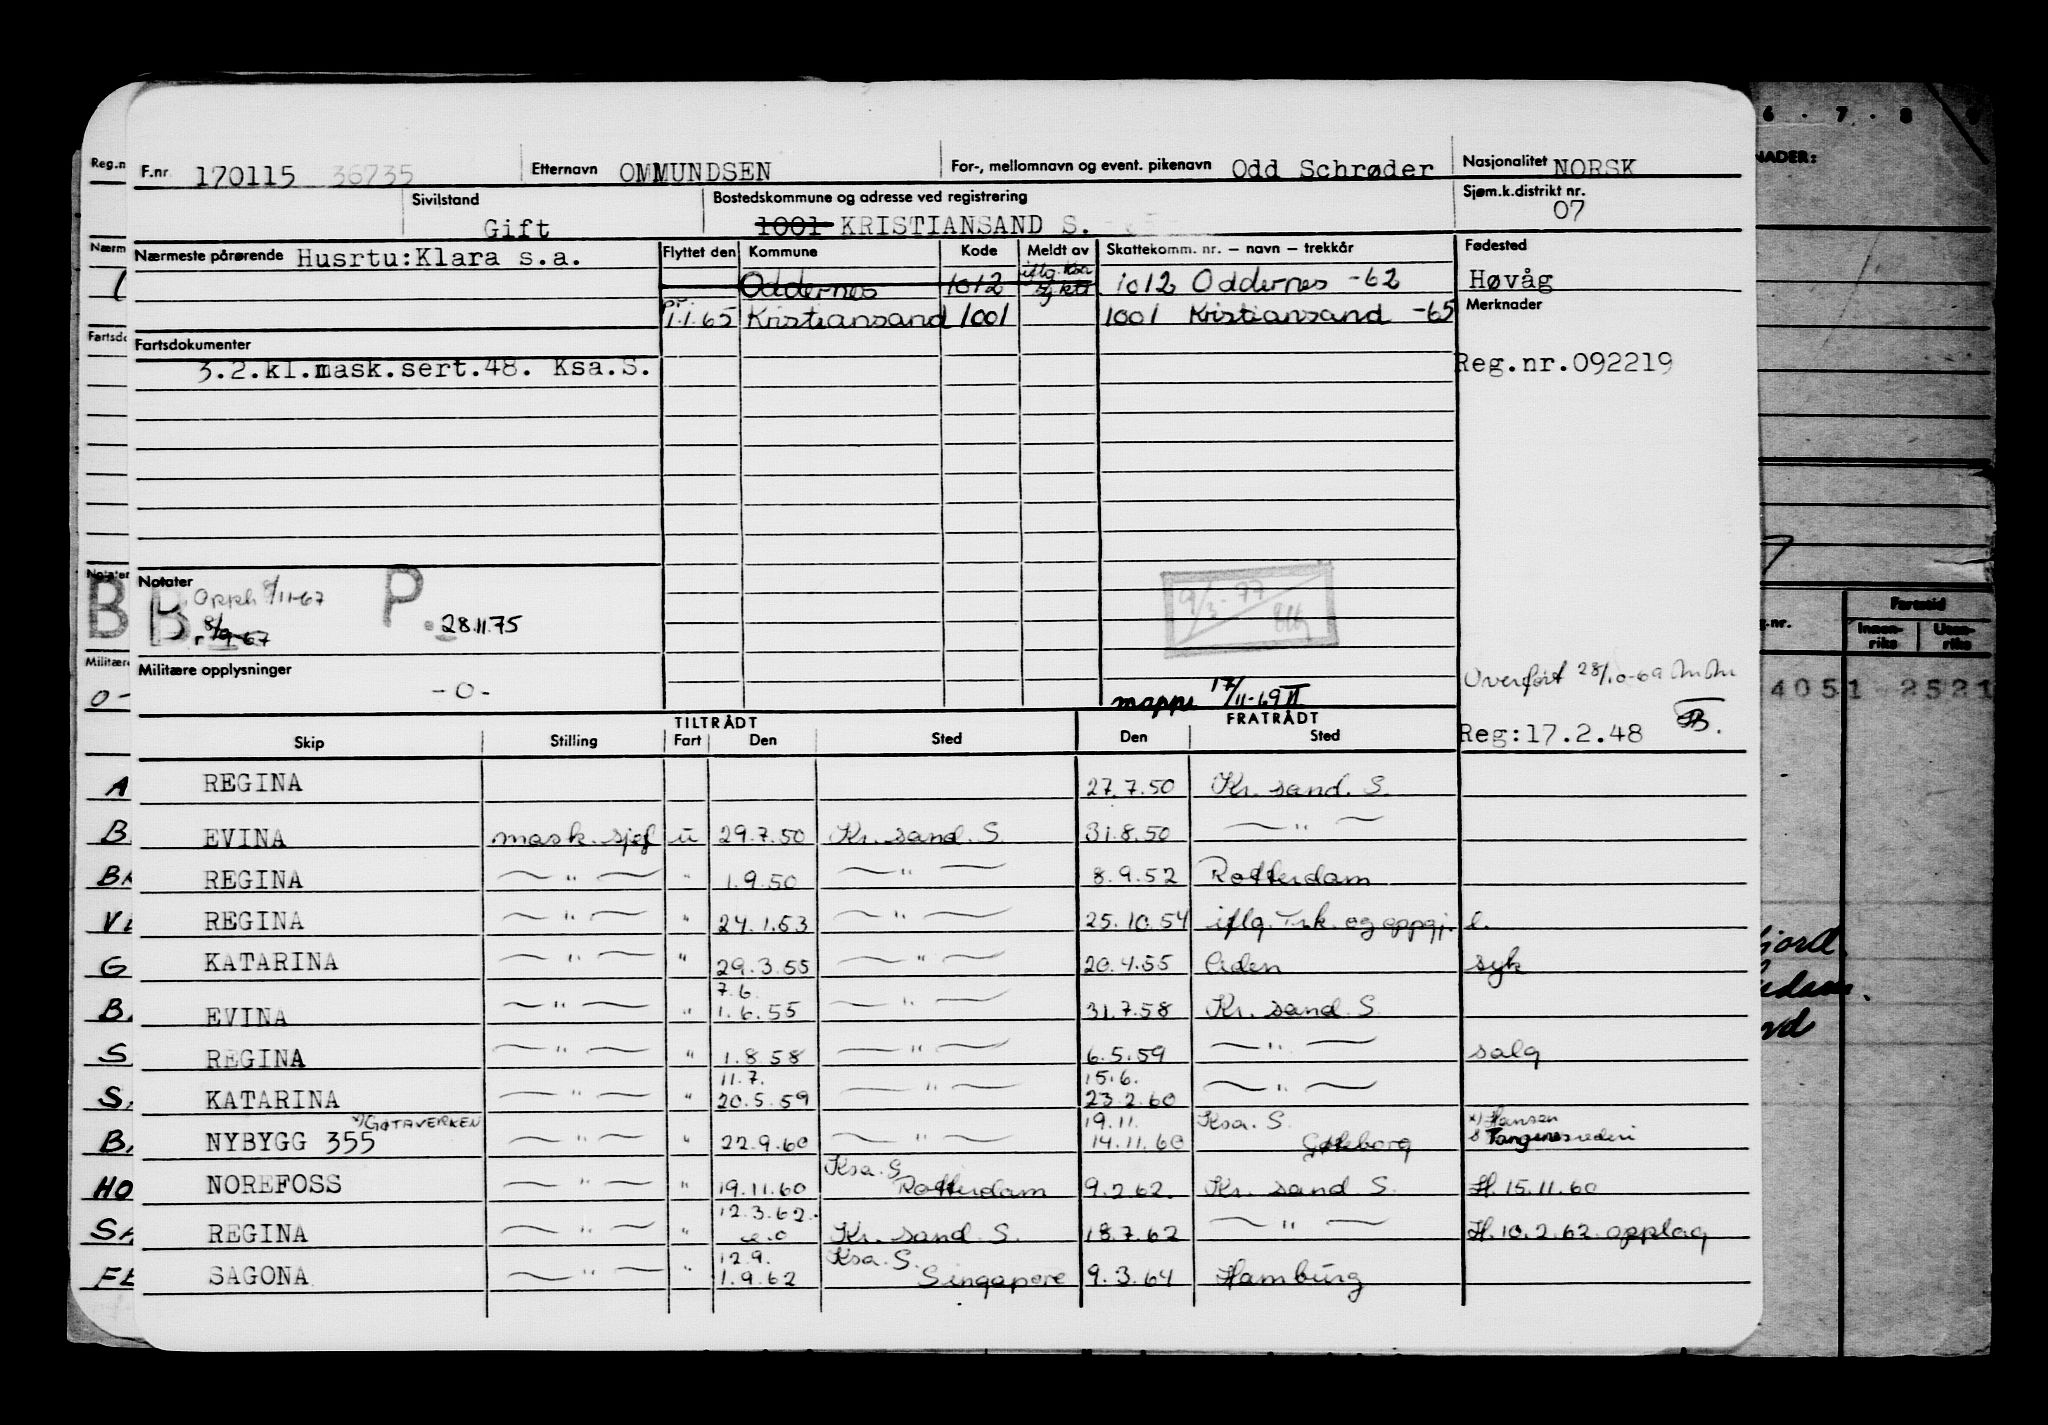 F.nr. 170115 36735 Etternavn OMMUNDSEN For-, mellomnavn og event. pikenavn Odd Schrøder Nasjonalitet NORSK
Sivilstand Gift Bostedskommune og adresse ved registrering 1001 KRISTIANSAND S. Sjøm.k.distrikt nr. 07
Nærmeste pårørende Husrtu:Klara s.a. Flyttet den Kommune Kode Meldt av Skattekomm. nr. – navn – trekkår Fødested
Oddernes 1012 iflg. Ksa sj.ktr 1012 Oddernes -62 Høvåg
pr. 1.1.65 Kristiansand 1001 1001 Kristiansand -65 Merknader
Fartsdokumenter
3.2.kl.mask.sert.48. Ksa.S. Reg.nr.092219
Notater
B Opph 8/11-67 P. 28.11.75 9/3-77
r 8/9-67
Militære opplysninger
-0- Overført 28/10-69
mappe 17/11-69
Reg:17.2.48
TILTRÅDT FRATRÅDT
Skip Stilling Fart Den Sted Den Sted
REGINA 27.7.50 Kr. sand. S.
EVINA mask. sjef u 29.7.50 Kr. sand S. 31.8.50 — " —
REGINA — " — " 1.9.50 — " — 8.9.52 Rotterdam
REGINA — " — " 24.1.53 — " — 25.10.54 iflg. Trk. og oppgj. l.
KATARINA — " — " 29.3.55 — " — 20.4.55 Aden syk
EVINA — " — " 7.6. 1.6.55 — " — 31.7.58 Kr. sand S
REGINA — " — " 1.8.58 — " — 6.5.59 — " — salg
KATARINA — " — " 11.7. 20.5.59 — " — 15.6. 23.2.60 — " —
NYBYGG 355 x) GØTAVERKEN — " — " 22.9.60 — " — 19.11. 14.11.60 Ksa. S. Gøteborg x) Hansen & Tangensrederi
NOREFOSS — " — " 19.11.60 Ksa. S Rotterdam 9.2.62. Kr. sand S. H. 15.11.60
REGINA — " — " 12.3.62. e.o Kr. sand S. 18.7.62 — " — H. 10.2.62 opplag
SAGONA — " — " 12.9. 1.9.62 Ksa. S. Singapore 9.3.64 Hamburg
Reg.n
Nærm
Fartsdo
Notater
B
Militære
0-
A
B
G
B
S
HO
6 . 7 . 8
NADER:
.nr. Fartstid
Innenriks Utenriks
4051 2521